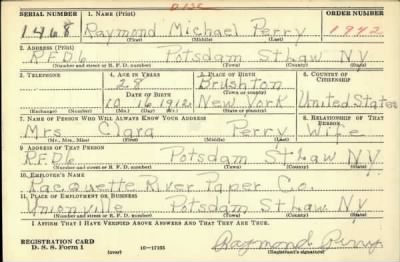 D 125
SERIAL NUMBER 1. NAME (Print) ORDER NUMBER
1468 Raymond Michael Perry 1942
(First) (Middle) (Last)
2. ADDRESS (Print)
R.F.D. 6 Potsdam St Law N.Y.
(Number and street or R. F. D. number) (Town) (County) (State)
3. TELEPHONE 4. AGE IN YEARS 5. PLACE OF BIRTH 6. COUNTRY OF CITIZENSHIP
28 Brushton
DATE OF BIRTH (Town or county)
10 16 1912 New York United States
(Exchange) (Number) (Mo.) (Day) (Yr.) (State or country)
7. NAME OF PERSON WHO WILL ALWAYS KNOW YOUR ADDRESS 8. RELATIONSHIP OF THAT PERSON
Mrs Clara Perry Wife
(Mr., Mrs., Miss) (First) (Middle) (Last)
9. ADDRESS OF THAT PERSON
R.F.D.6 Potsdam St Law N.Y.
(Number and street or R. F. D. number) (Town) (County) (State)
10. EMPLOYER'S NAME
Racquette River Paper Co.
11. PLACE OF EMPLOYMENT OR BUSINESS
Unionville Potsdam St Law N.Y.
(Number and street or R. F. D. number) (Town) (County) (State)
I AFFIRM THAT I HAVE VERIFIED ABOVE ANSWERS AND THAT THEY ARE TRUE.
REGISTRATION CARD
D. S. S. Form 1 (over) 16—17105 Raymond Perry
(Registrant's signature)